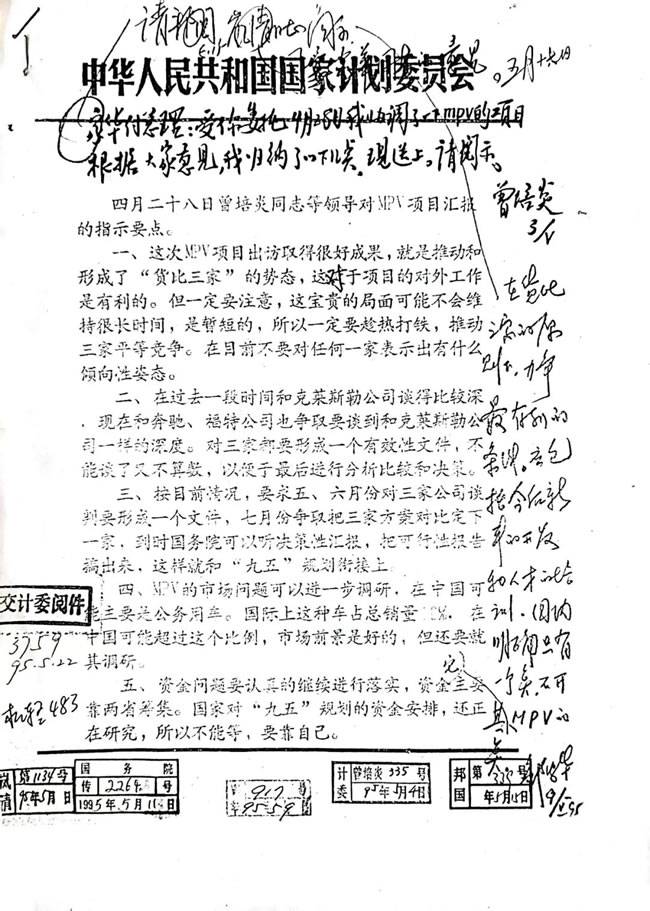 中华人民共和国国家计划委员会
家华付总理：受你委托，4月28日我协调了一下mpv的项目
根据大家意见，我归纳了以下几点，现送上。请阅示。
曾培炎
3/5
四月二十八日曾培炎同志等领导对MPV项目汇报
的指示要点。
一、这次MPV项目出访取得很好成果，就是推动和
形成了“货比三家”的势态，这对于项目的对外工作
是有利的。但一定要注意，这宝贵的局面可能不会维
持很长时间，是暂短的，所以一定要趁热打铁，推动
三家平等竞争。在目前不要对任何一家表示出有什么
倾向性姿态。
二、在过去一段时间和克莱斯勒公司谈得比较深
，现在和奔驰、福特公司也争取要谈到和克莱斯勒公
司一样的深度。对三家都要形成一个有效性文件，不
能谈了又不算数，以便于最后进行分析比较和决策。
三、按目前情况，要求五、六月份对三家公司谈
判要形成一个文件，七月份争取把三家方案对比定下
一家，到时国务院可以听决策性汇报，把可行性报告
搞出来，这样就和“九五”规划衔接上。
四、MPV的市场问题可以进一步调研，在中国可
能主要是公务用车。国际上这种车占总销量 %，在
中国可能超过这个比例，市场前景是好的，但还要就
其调研。
五、资金问题要认真的继续进行落实，资金主要
靠两省筹集。国家对“九五”规划的资金安排，还正
在研究，所以不能等，要靠自己。
在货比
三家的原
则下，力争
最有利的
条件。应包
括今后新
车的开发
和人才的培
训，国内
明确只有
一个点，不可
其它MPV的
点
交计委阅件
3759
95.5.22
机轻483
岚清
第1134号
95年5月 日
国务院
传 2264 号
1995年5月11日
917
95.5.9
计委
曾培炎335号
95年5月4日
邦国
第 号
年5月15日